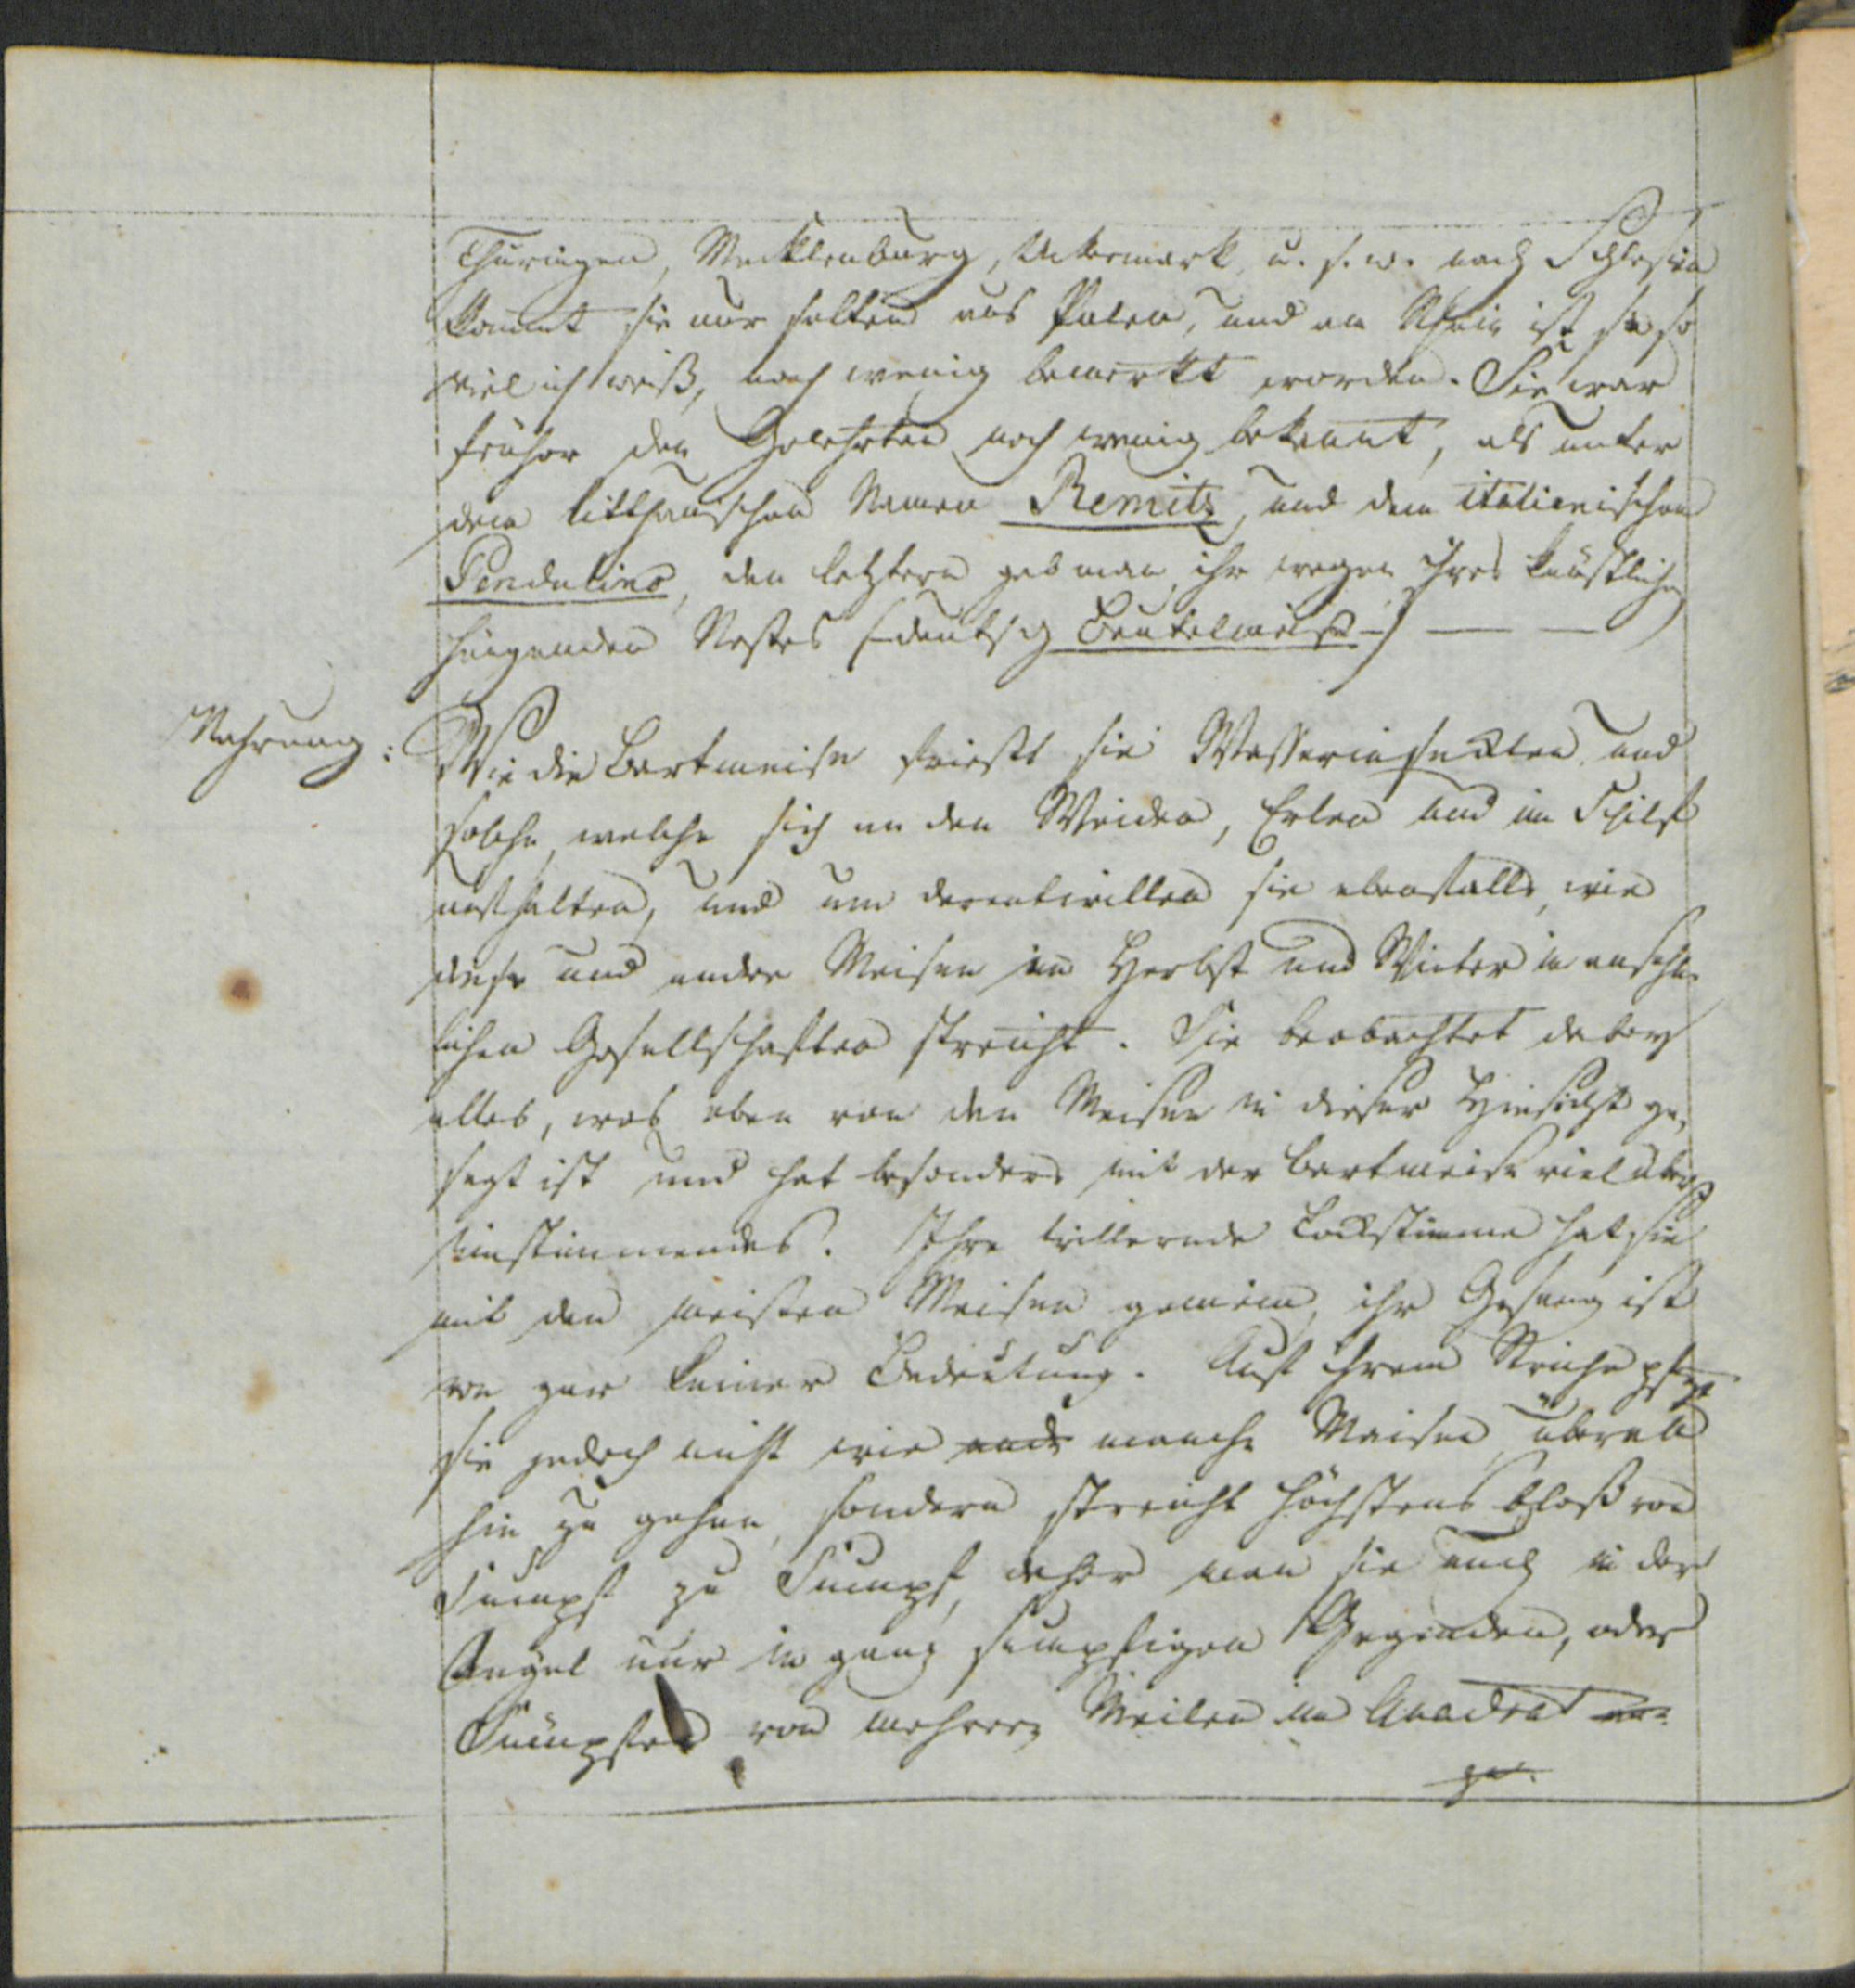 Thüringen, Mecklenburg, Ukermark, u. s. w. nach Schlesien
kommt sie nur selten aus Polen, und am Rhein ist sie so
viel ich weiß, noch wenig bemerkt worden. Sie war
früher den Gelehrten noch wenig bekannt, als unter
dem litthauischen Namen Remitz, und dem italienischen
Pendulino, den letztern gab man ihr wegen ihres künstlichen
hängenden Nestes (deutsch Beutelmeise) — —
Nahrung:
Wie die Bartmeise frießt sie Wasserinsekten und
solche, welche sich an den Weiden, Erlen und im Schilf
aufhalten, und um derentwillen sie ebenfalls, wie
diese und andre Meisen im Herbst und Winter in ansehn-
lichen Gesellschaften streicht. Sie beobachtet dabey
alles, was oben von den Meisen in dieser Hinsicht ge-
sagt ist und hat besonders mit der Bartmeise viel über-
einstimmendes. Ihre trillernde Lockstimme hat sie
mit den meisten Meisen gemein, ihr Gesang ist
von gar keiner Bedeutung. Auf ihrem Striche pflegt
sie jedoch nicht wie manche Meisen, überall
hin zu gehen, sondern streicht höchstens bloß von
Sumpf zu Sumpf, daher man sie auch in der
Regel nur in ganz sumpfigen Gegenden, oder
Sümpfen von mehrern Meilen im Quadrat